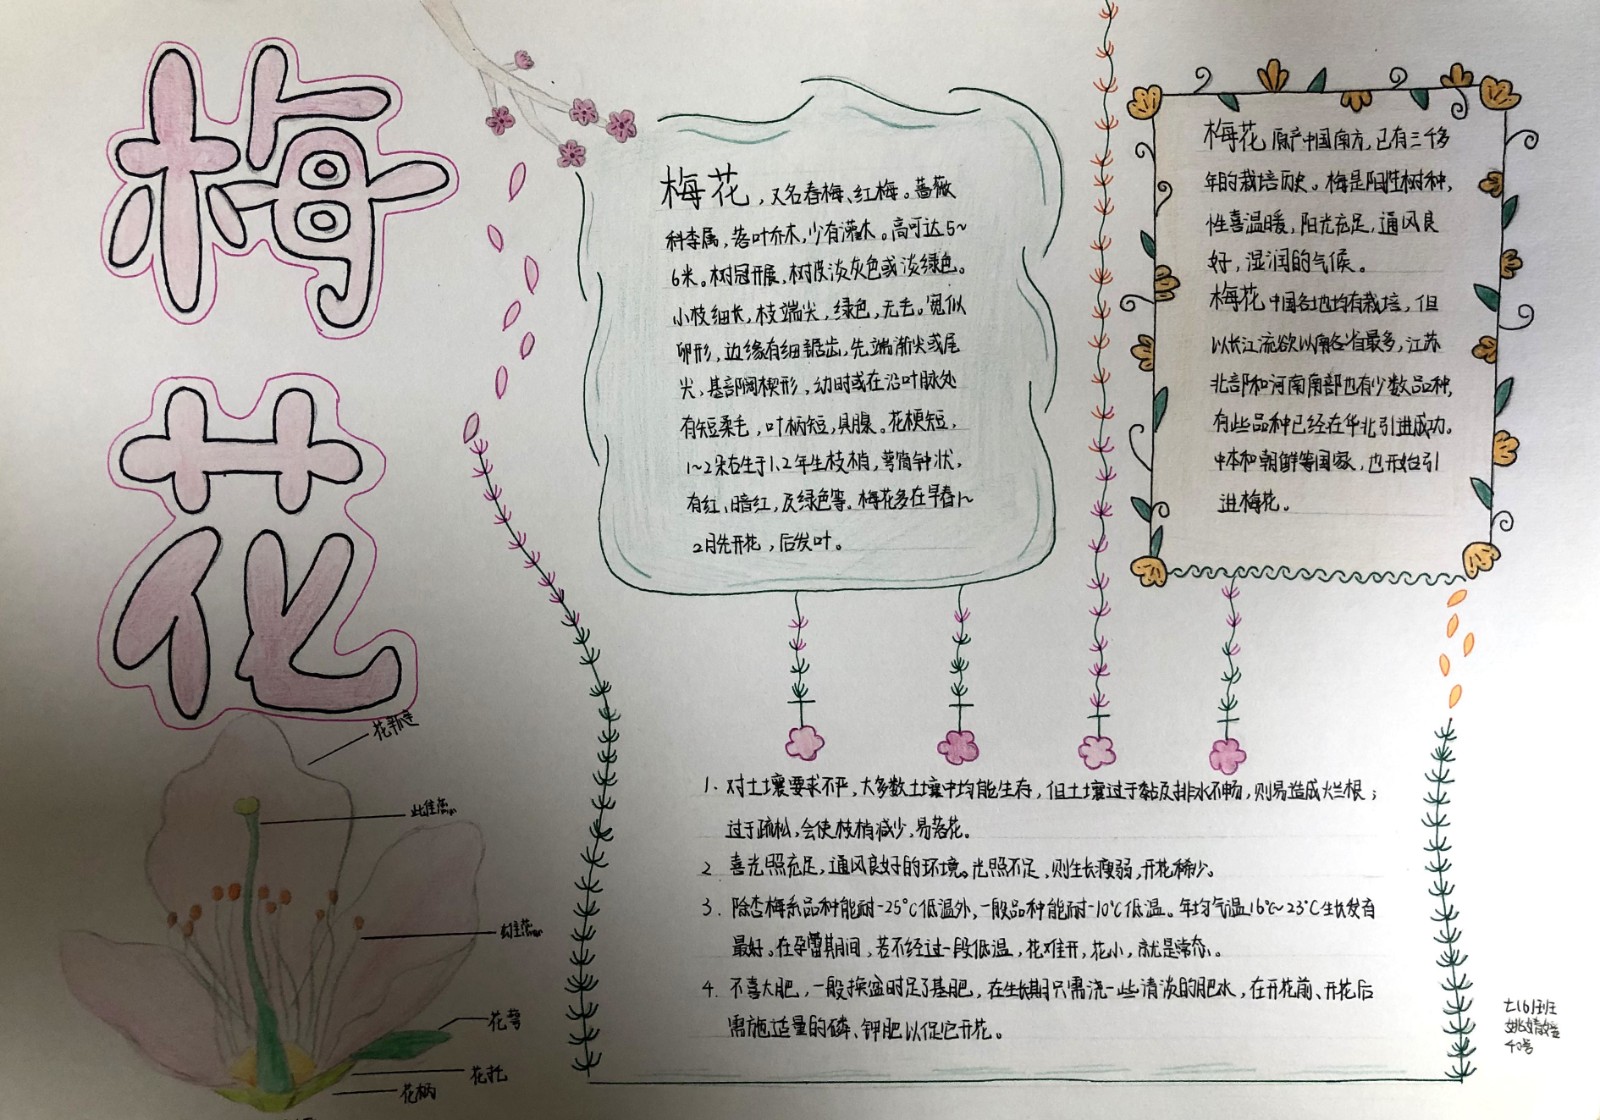 梅
花
梅花，又名春梅、红梅。蔷薇
科李属，落叶乔木，少有灌木。高可达5~
6米。树冠开展，树皮淡灰色或淡绿色。
小枝细长，枝端尖，绿色，无毛。宽似
卵形，边缘有细锯齿，先端渐尖或尾
尖，基部阔楔形，幼时或在沿叶脉处
有短柔毛，叶柄短，具腺。花梗短，
1~2朵右生于1、2年生枝梢，萼筒钟状，
有红、暗红，及绿色等。梅花多在早春1~
2月先开花，后发叶。
梅花原产中国南方，已有三千多
年的栽培历史。梅是阳性树种，
性喜温暖，阳光充足，通风良
好，湿润的气候。
梅花中国各地均有栽培，但
以长江流欲以南各省最多，江苏
北部和河南南部也有少数品种，
有些品种已经在华北引进成功。
本和朝鲜等国家，也开始引
进梅花。
1. 对土壤要求不严，大多数土壤中均能生存，但土壤过于黏及排水不畅，则易造成烂根；
过于疏松，会使枝梢减少，易落花。
2 喜光照充足，通风良好的环境。光照不足，则生长瘦弱，开花稀少。
3. 除杏梅系品种能耐-25°C低温外，一般品种能耐-10°C低温。年均气温16°C~23°C生长发育
最好。在孕蕾期间，若不经过一段低温，花难开，花小，就是常态。
4. 不喜大肥，一般换盆时足了基肥，在生长期只需浇一些清淡的肥水，在开花前、开花后
需施适量的磷、钾肥以促它开花。
花
花萼
花托
花柄
班
40号